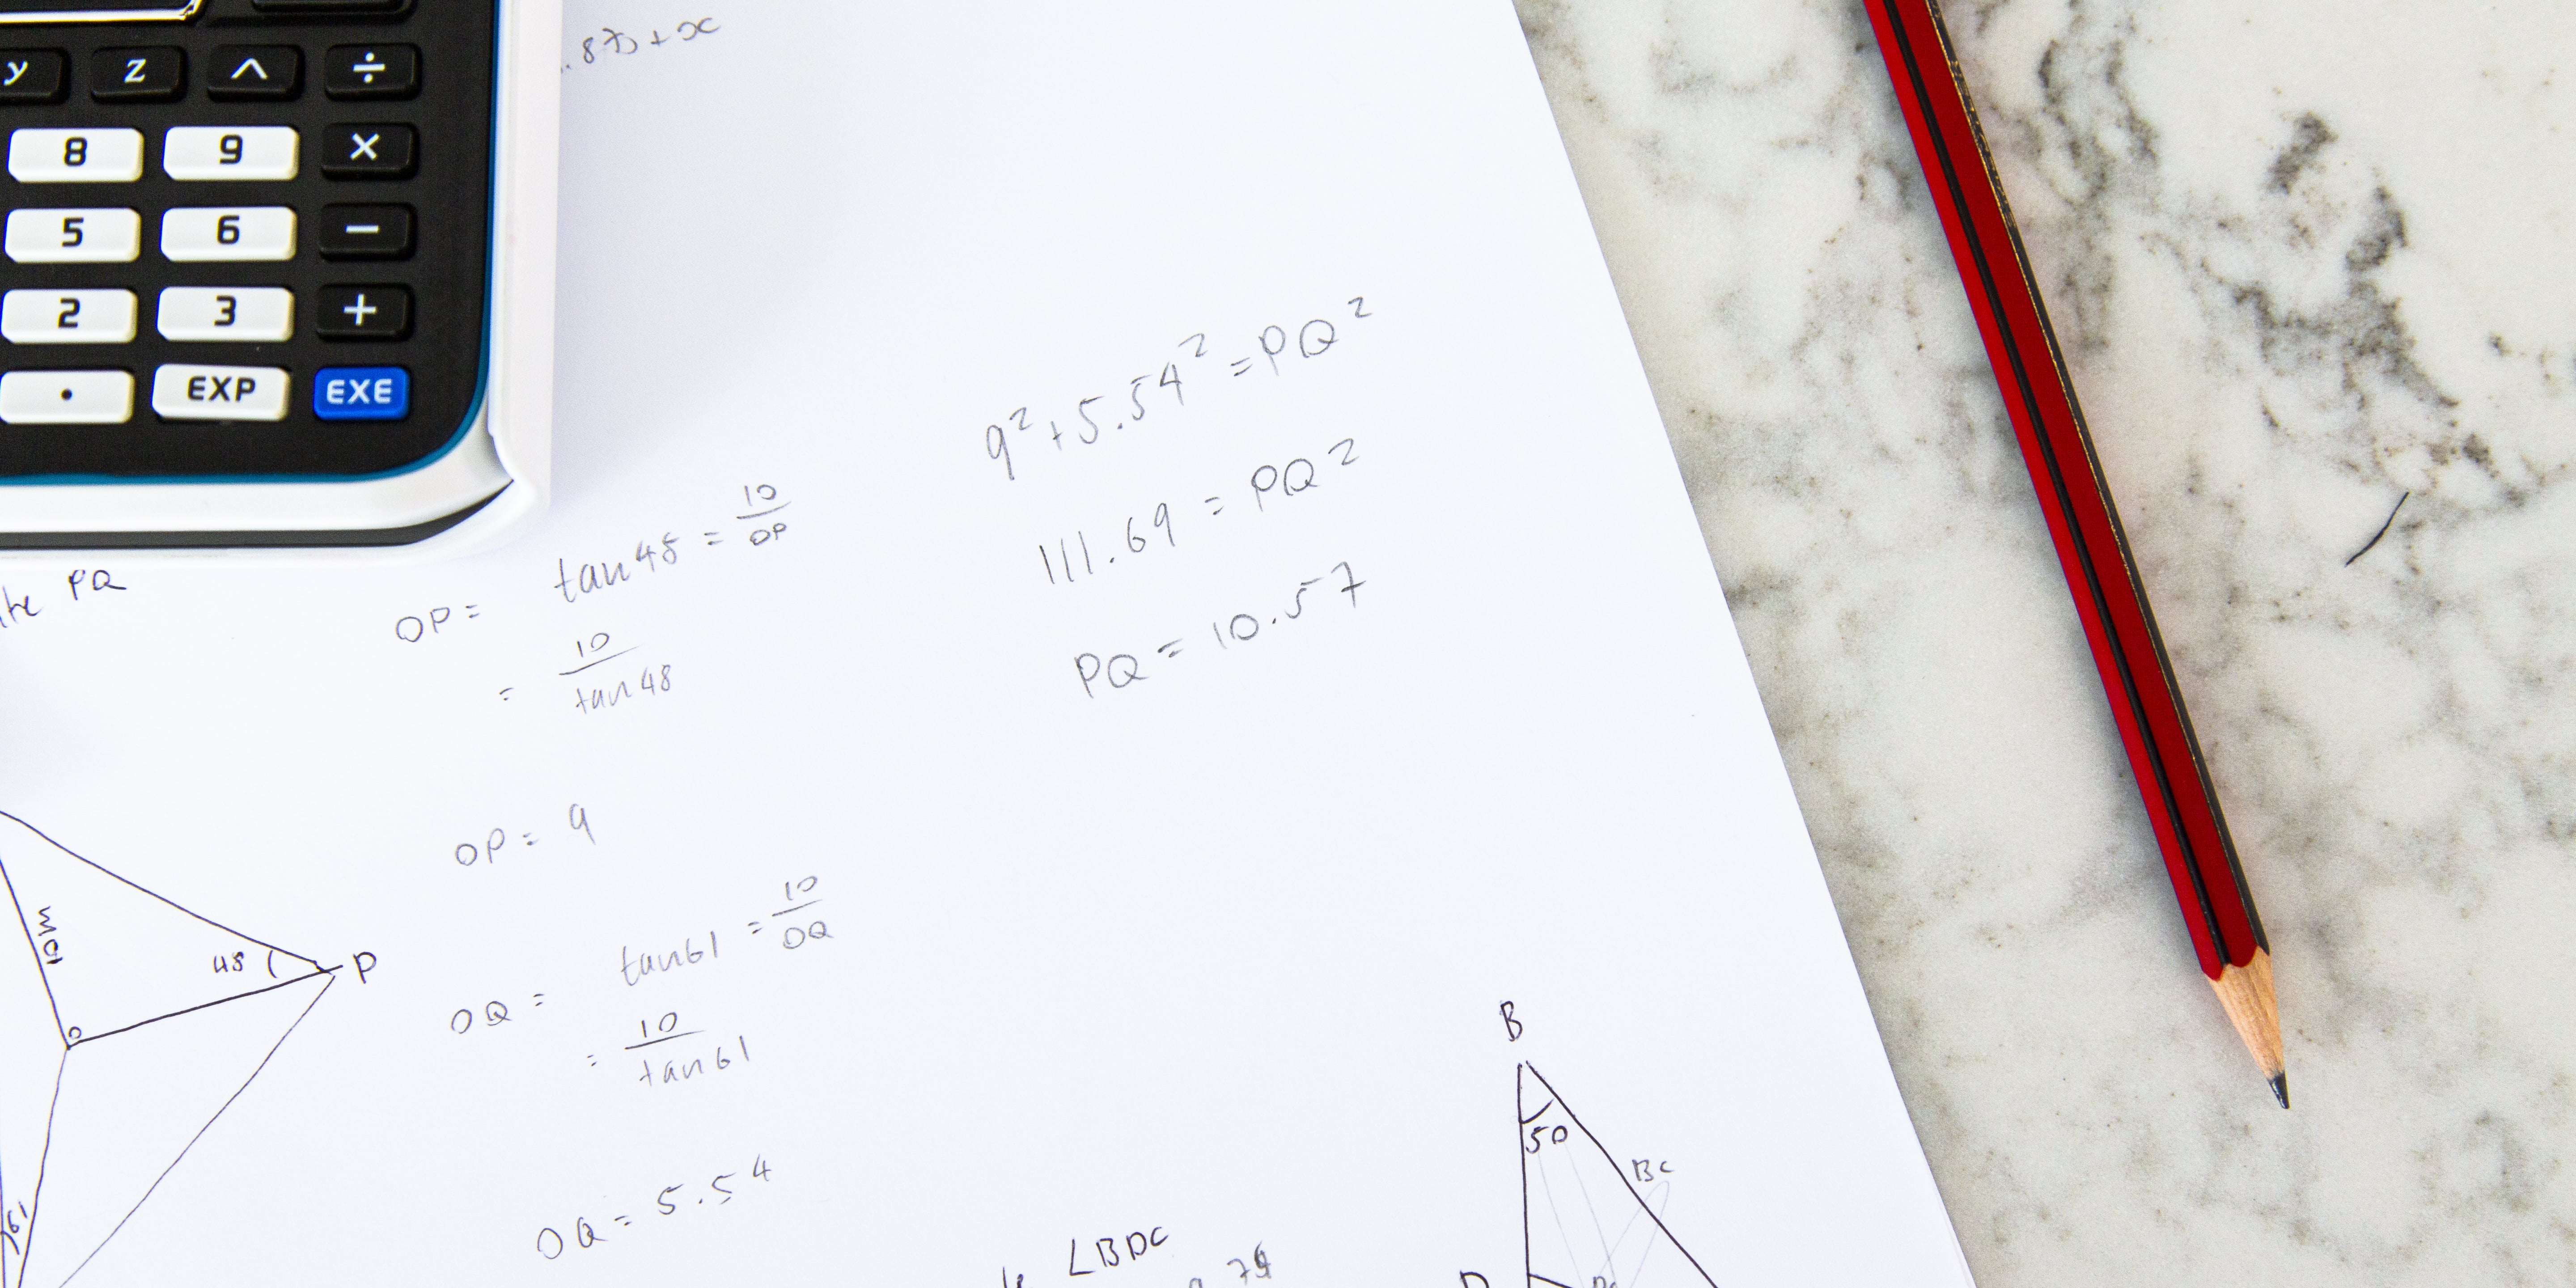 y z ^ ÷
8 9 ×
5 6 −
2 3 +
. EXP EXE
+ x
PQ
OP = tan 48 = 10/OP
= 10/tan 48
OP = 9
OQ = tan 61 = 10/OQ
= 10/tan 61
OQ = 5.54
9² + 5.54² = PQ²
111.69 = PQ²
PQ = 10.57
10M
48
P
O
61
B
50
BC
∠BDC